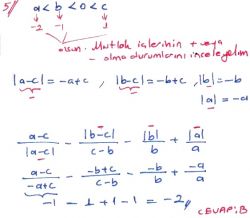 5/ a < b < 0 < c
-2 -1 1
olsun. Mutlak içlerinin + veya
- olma durumlarını inceleyelim
|a-c| = -a+c , |b-c| = -b+c , |b| = -b
|a| = -a
a-c/|a-c| - |b-c|/c-b - |b|/b + |a|/a
a-c/-a+c - -b+c/c-b - -b/b + -a/a
-1 - 1 + 1 - 1 = -2
CEVAP: B